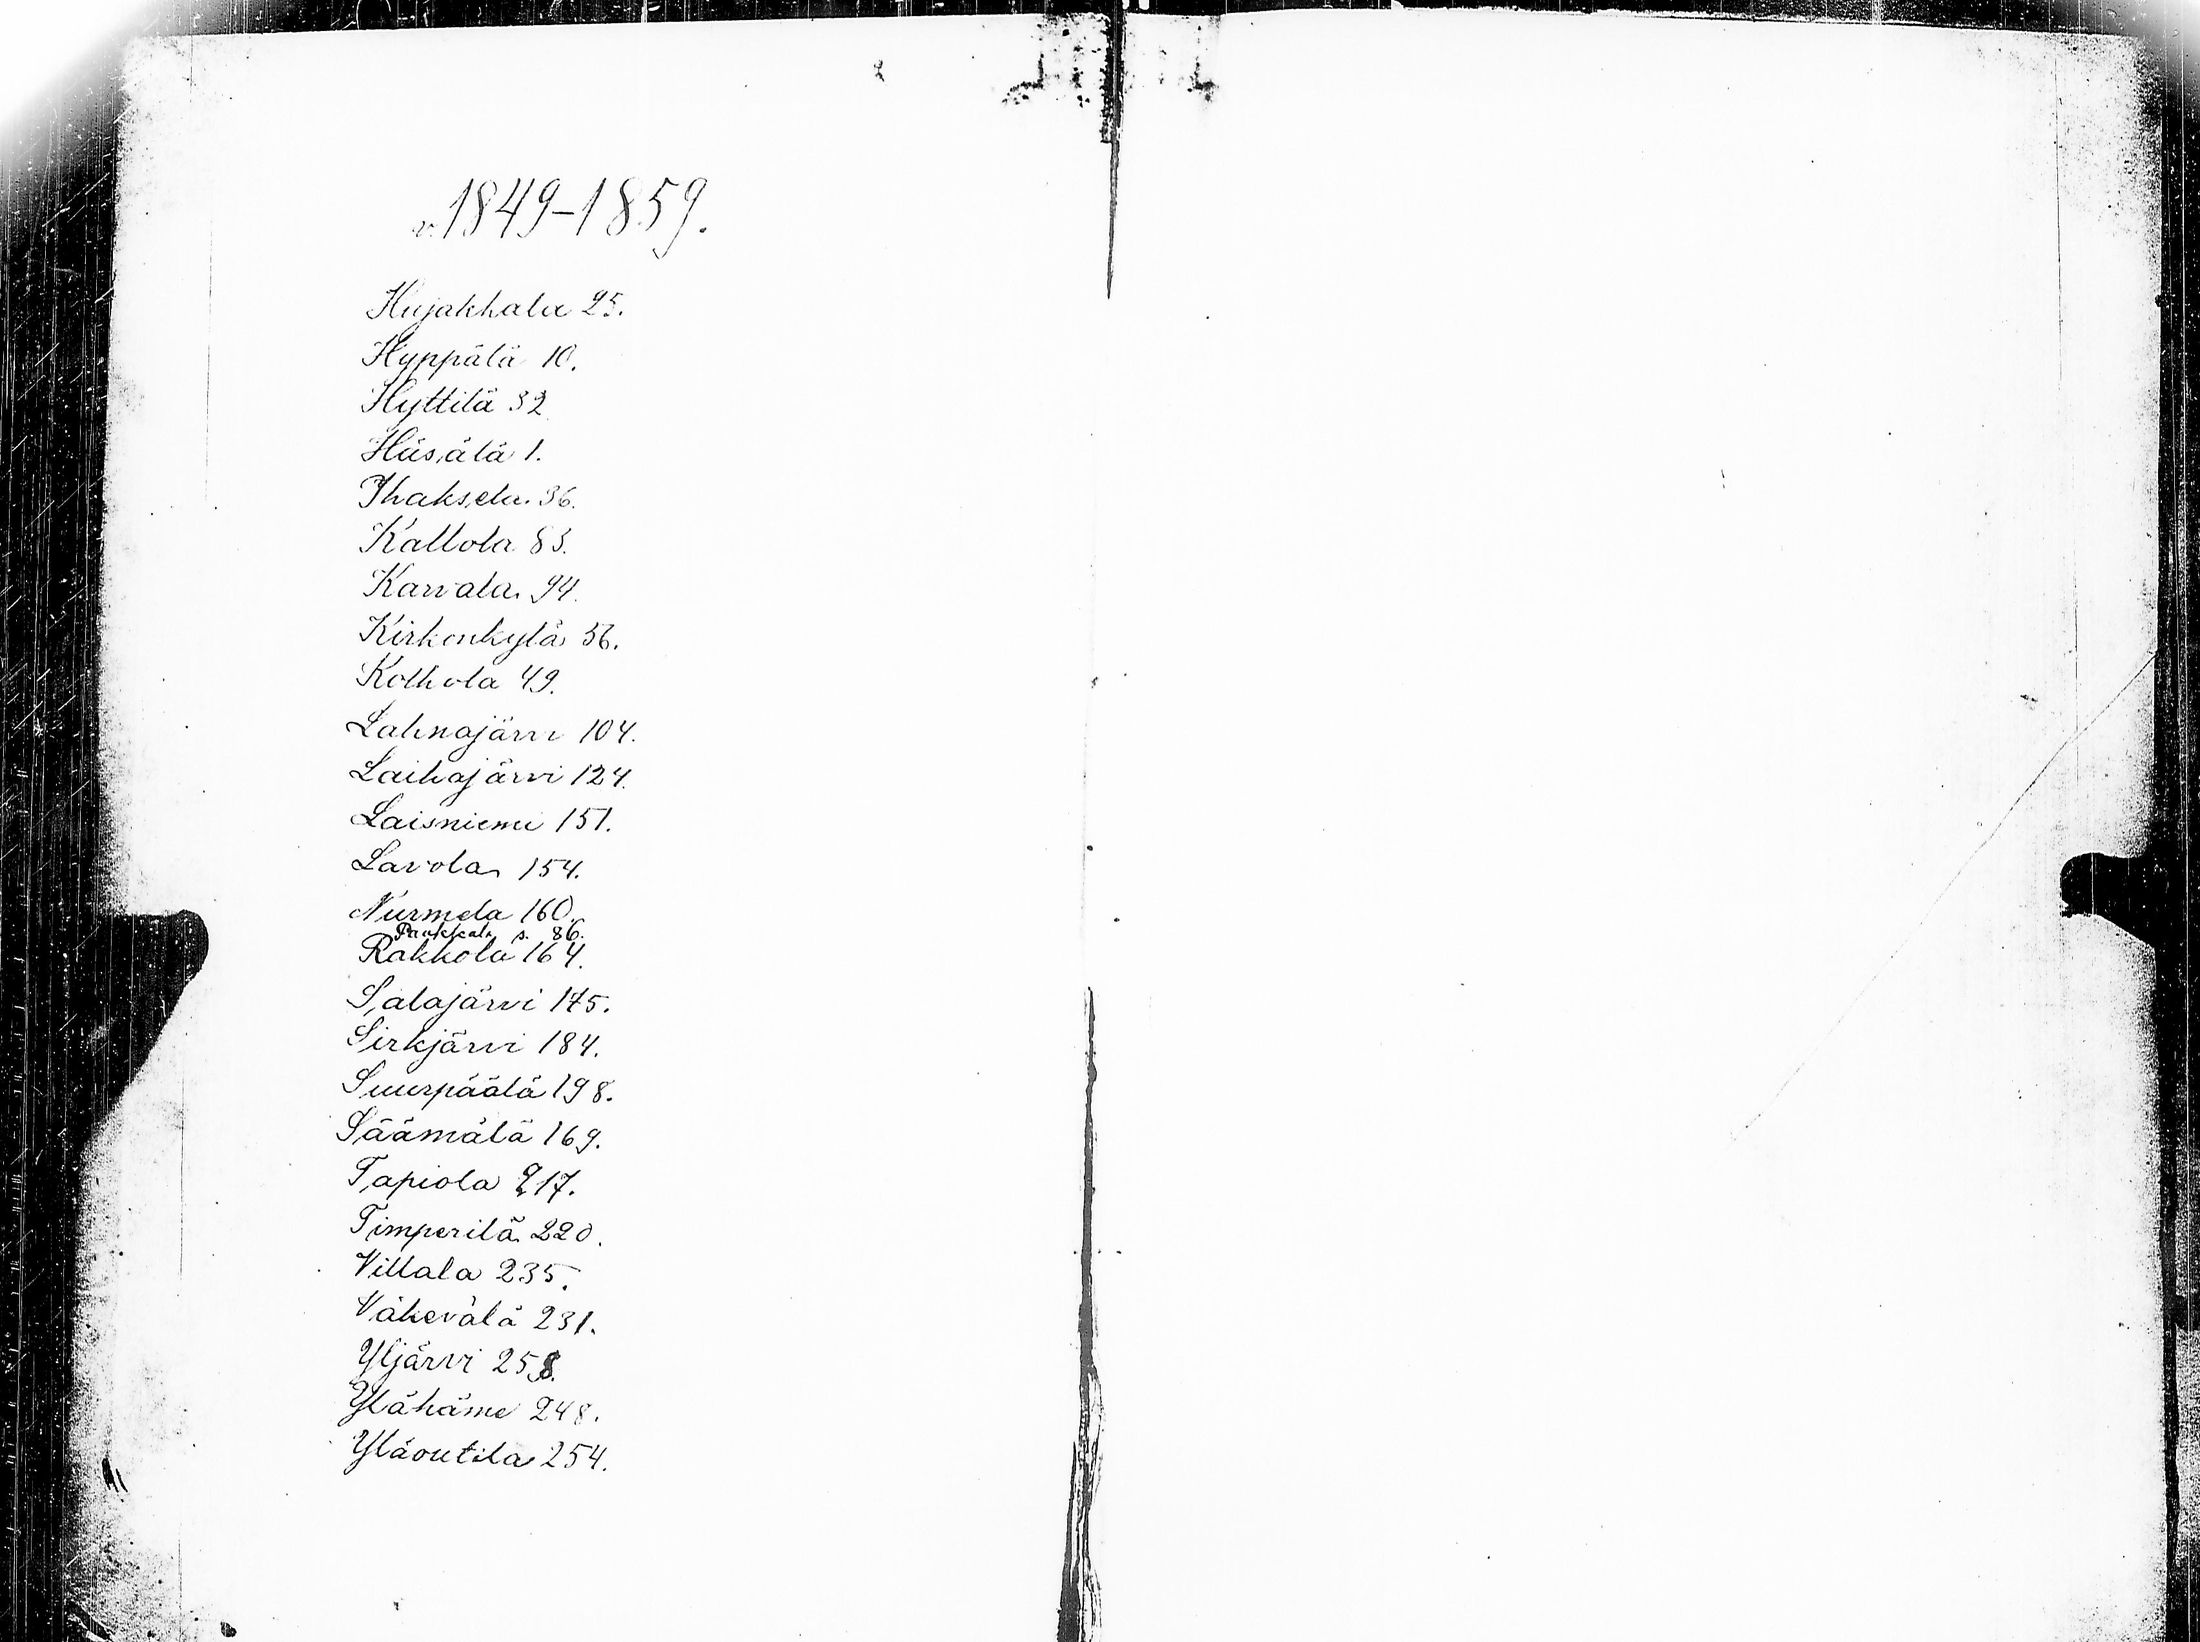 v. 1849-1859.
Hujakkala 25.
Hyppälä 10.
Hyttilä 32
Häsälä 1.
Ihaksela 36.
Kaltola 83.
Karvala 94.
Kirkonkylä 56.
Kolhola 49.
Lahnajärvi 104.
Laihajärvi 124.
Laisniemi 151.
Lavola 154.
Nurmela 160.
Paakkala s. 86.
Rakkola 164.
Salajärvi 175.
Sirkjärvi 184.
Suurpäälä 198.
Säämälä 169.
Tapiola 217.
Timperilä 220.
Villala 235.
Väkevälä 231.
Yljärvi 258.
Ylähäme 248.
Yläoutila 254.